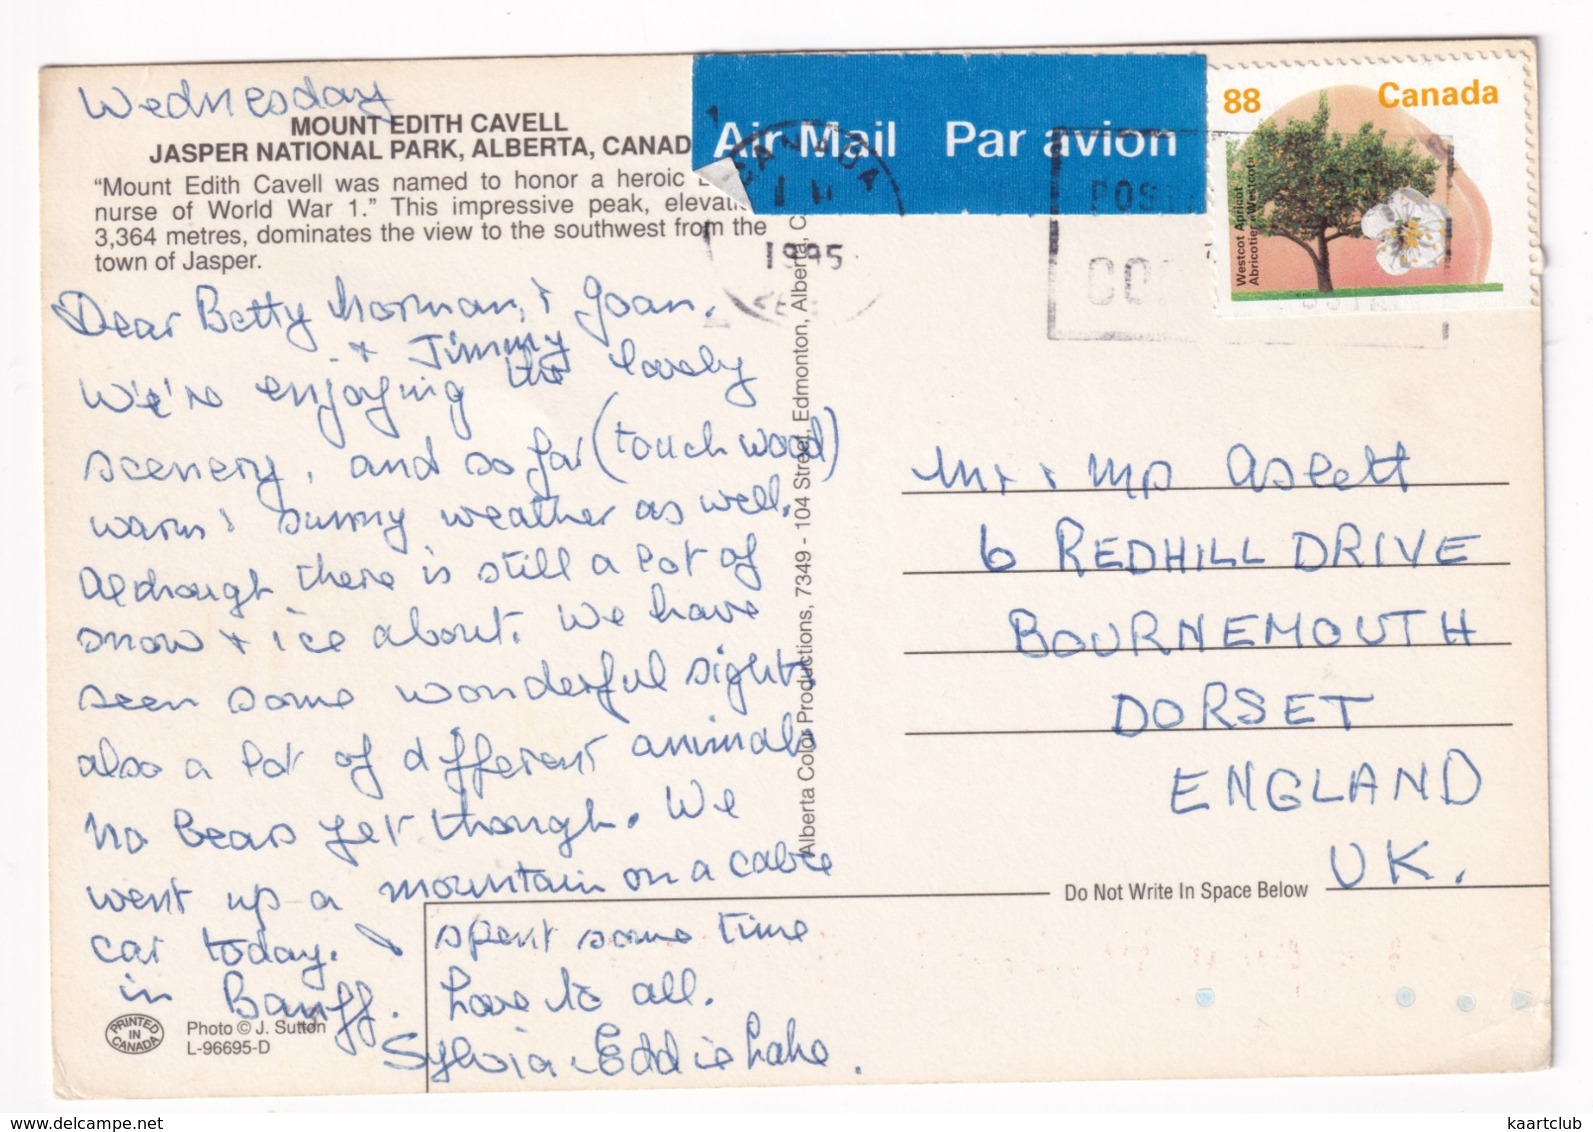 Wednesday
MOUNT EDITH CAVELL
JASPER NATIONAL PARK, ALBERTA, CANAD
"Mount Edith Cavell was named to honor a heroic
nurse of World War 1." This impressive peak, elevati
3,364 metres, dominates the view to the southwest from the
town of Jasper.
Air Mail Par avion
CANADA
1995
POS
CO
88 Canada
Westcot Apricot
Abricotier Westcot
Dear Betty Norman, & Joan.
+ Jimmy
We're enjoying the lovely
scenery, and so far (touch wood)
warm & sunny weather as well.
Although there is still a lot of
snow + ice about. We have
seen some wonderful sights
also a lot of different animals
No bears yet though. We
went up a mountain on a cable
car today. & spent some time
in Banff. Love to all.
Sylvia & Eddie Lake.
Alberta Color Productions, 7349 - 104 Street, Edmonton, Alberta, C
Mr & Mrs Aslett
6 REDHILL DRIVE
BOURNEMOUTH
DORSET
ENGLAND
UK.
Do Not Write In Space Below
PRINTED
IN
CANADA
Photo © J. Sutton
L-96695-D
www.delcampe.net
kaartclub